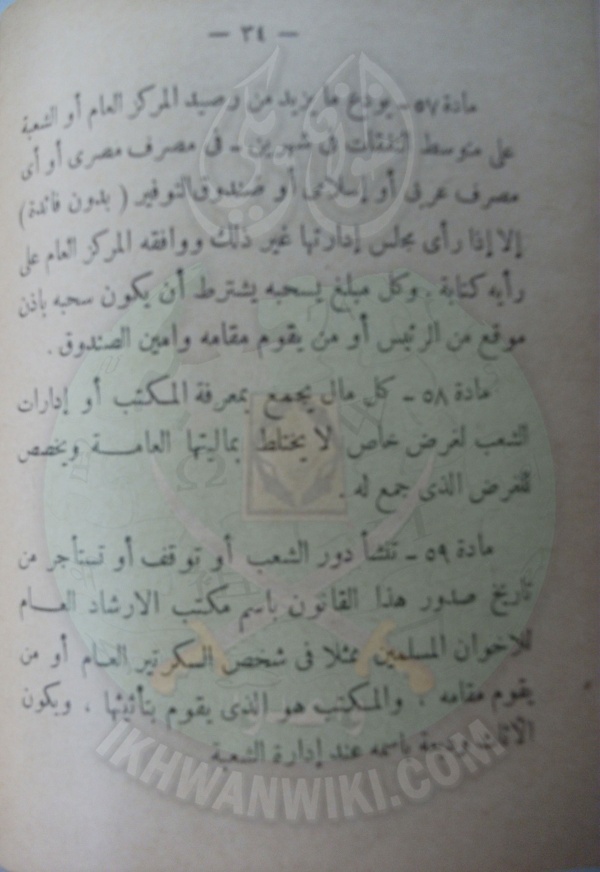 — ٣٤ —
مادة ٥٧ - يودع ما يزيد من رصيد المركز العام أو الشعبة
على متوسط النفقات فى شهرين - فى مصرف مصرى أو أى
مصرف عربى أو إسلامى أو صندوق التوفير ( بدون فائدة )
إلا إذا رأى مجلس إدارتها غير ذلك ووافقه المركز العام على
رأيه كتابة . وكل مبلغ يسحبه يشترط أن يكون سحبه باذن
موقع من الرئيس أو من يقوم مقامه وامين الصندوق .
مادة ٥٨ - كل مال يجمع بمعرفة المكتب أو إدارات
الشعب لغرض خاص لا يختلط بماليتها العامة ويخصص
للغرض الذى جمع له .
مادة ٥٩ - تنشأ دور الشعب أو توقف أو تستأجر من
تاريخ صدور هذا القانون باسم مكتب الارشاد العام
للاخوان المسلمين ممثلا فى شخص السكرتير العام أو من
يقوم مقامه ، والمكتب هو الذى يقوم بتأثيثها ، ويكون
الاثاث وديعة باسمه عند إدارة الشعبة
IKHWANWIKI.COM